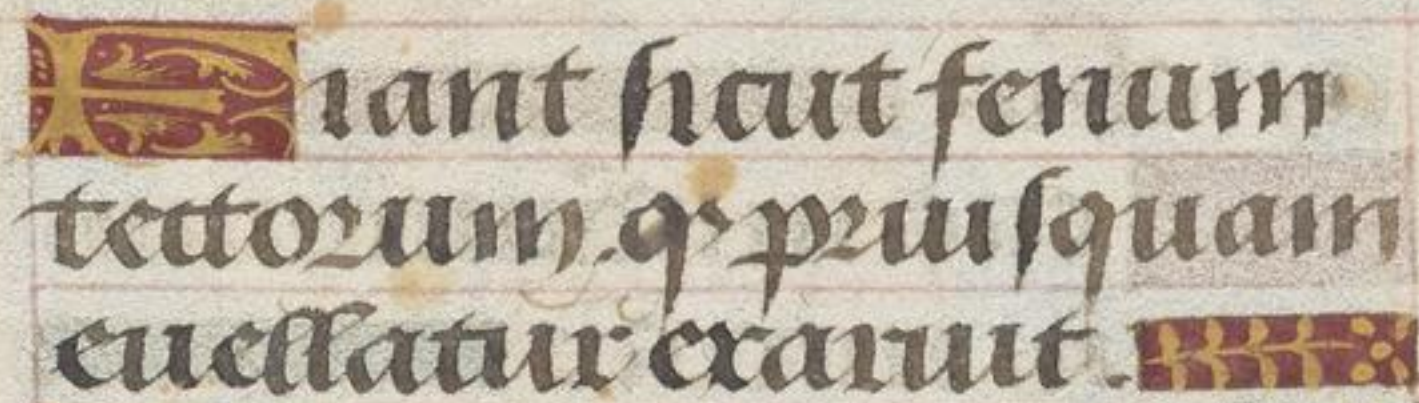 Fiant sicut fenum
tectorum qꝫ priusquam
euellatur exaruit.